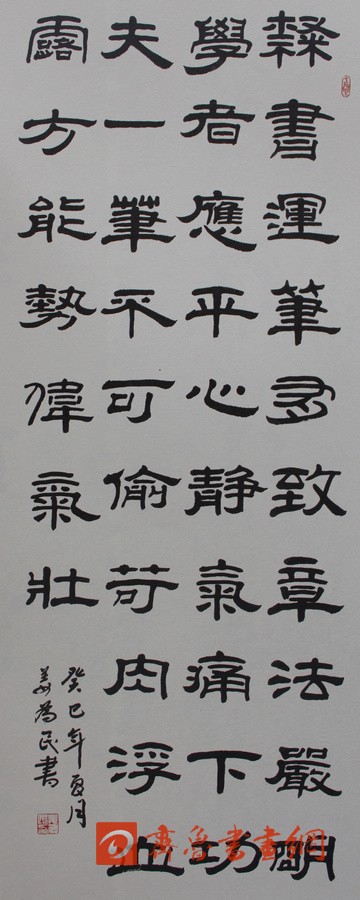 隸書運筆多致章法嚴明
學者應平心静氣痛下功
夫一筆不可偷苟肉浮血
露方能勢偉氣壯
癸巳年夏月
姜為民書
齊魯書畫網